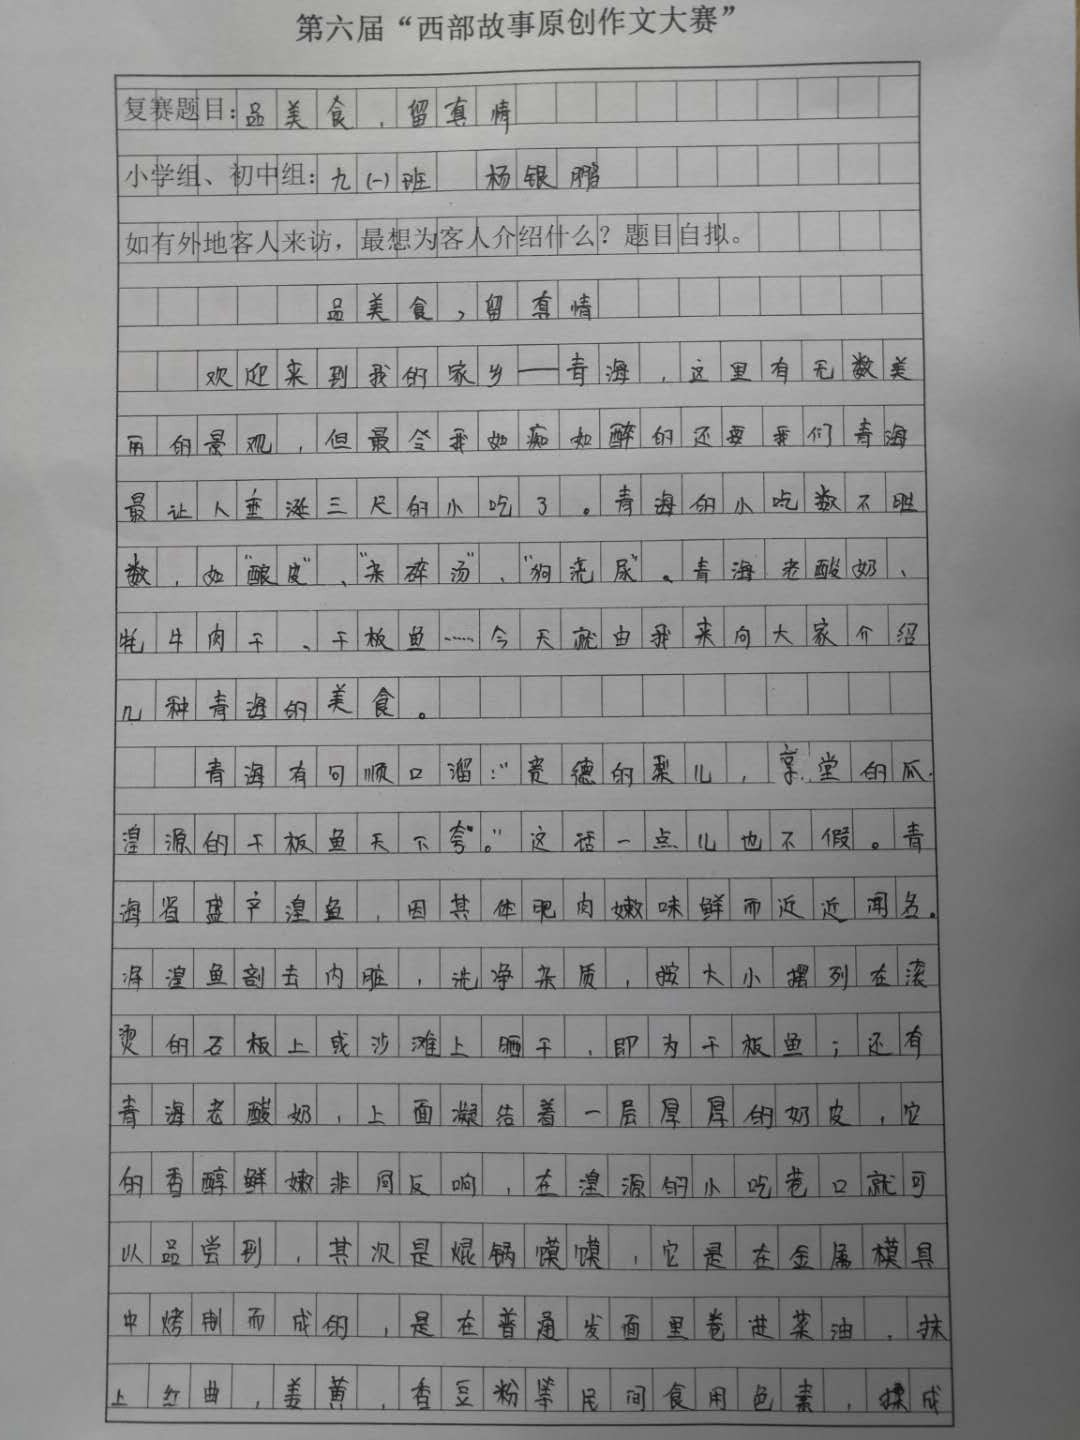 第六届“西部故事原创作文大赛”
复赛题目：品美食，留真情
小学组、初中组：九（一）班 杨银鹏
如有外地客人来访，最想为客人介绍什么？题目自拟。
品美食，留真情
欢迎来到我的家乡——青海，这里有无数美
丽的景观，但最令我如痴如醉的还要我们青海
最让人垂涎三尺的小吃了。青海的小吃数不胜
数，如“酿皮”、“杂碎汤”、“狗浇尿”。青海老酸奶、
牦牛肉干、干板鱼……今天就由我来向大家介绍
几种青海的美食。
青海有句顺口溜：“贵德的梨儿，享堂的瓜，
湟源的干板鱼天下夸。”这话一点儿也不假。青
海省盛产湟鱼，因其体肥肉嫩味鲜而近近闻名。
将湟鱼剖去内脏，洗净杂质，按大小摆列在滚
烫的石板上或沙滩上晒干，即为干板鱼；还有
青海老酸奶，上面凝结着一层厚厚的奶皮，它
的香醇鲜嫩非同反响，在湟源的小吃巷口就可
以品尝到，其次是焜锅馍馍，它是在金属模具
中烤制而成的，是在普通发面里卷进菜油，抹
上红曲，姜黄，香豆粉等民间食用色素，揉成